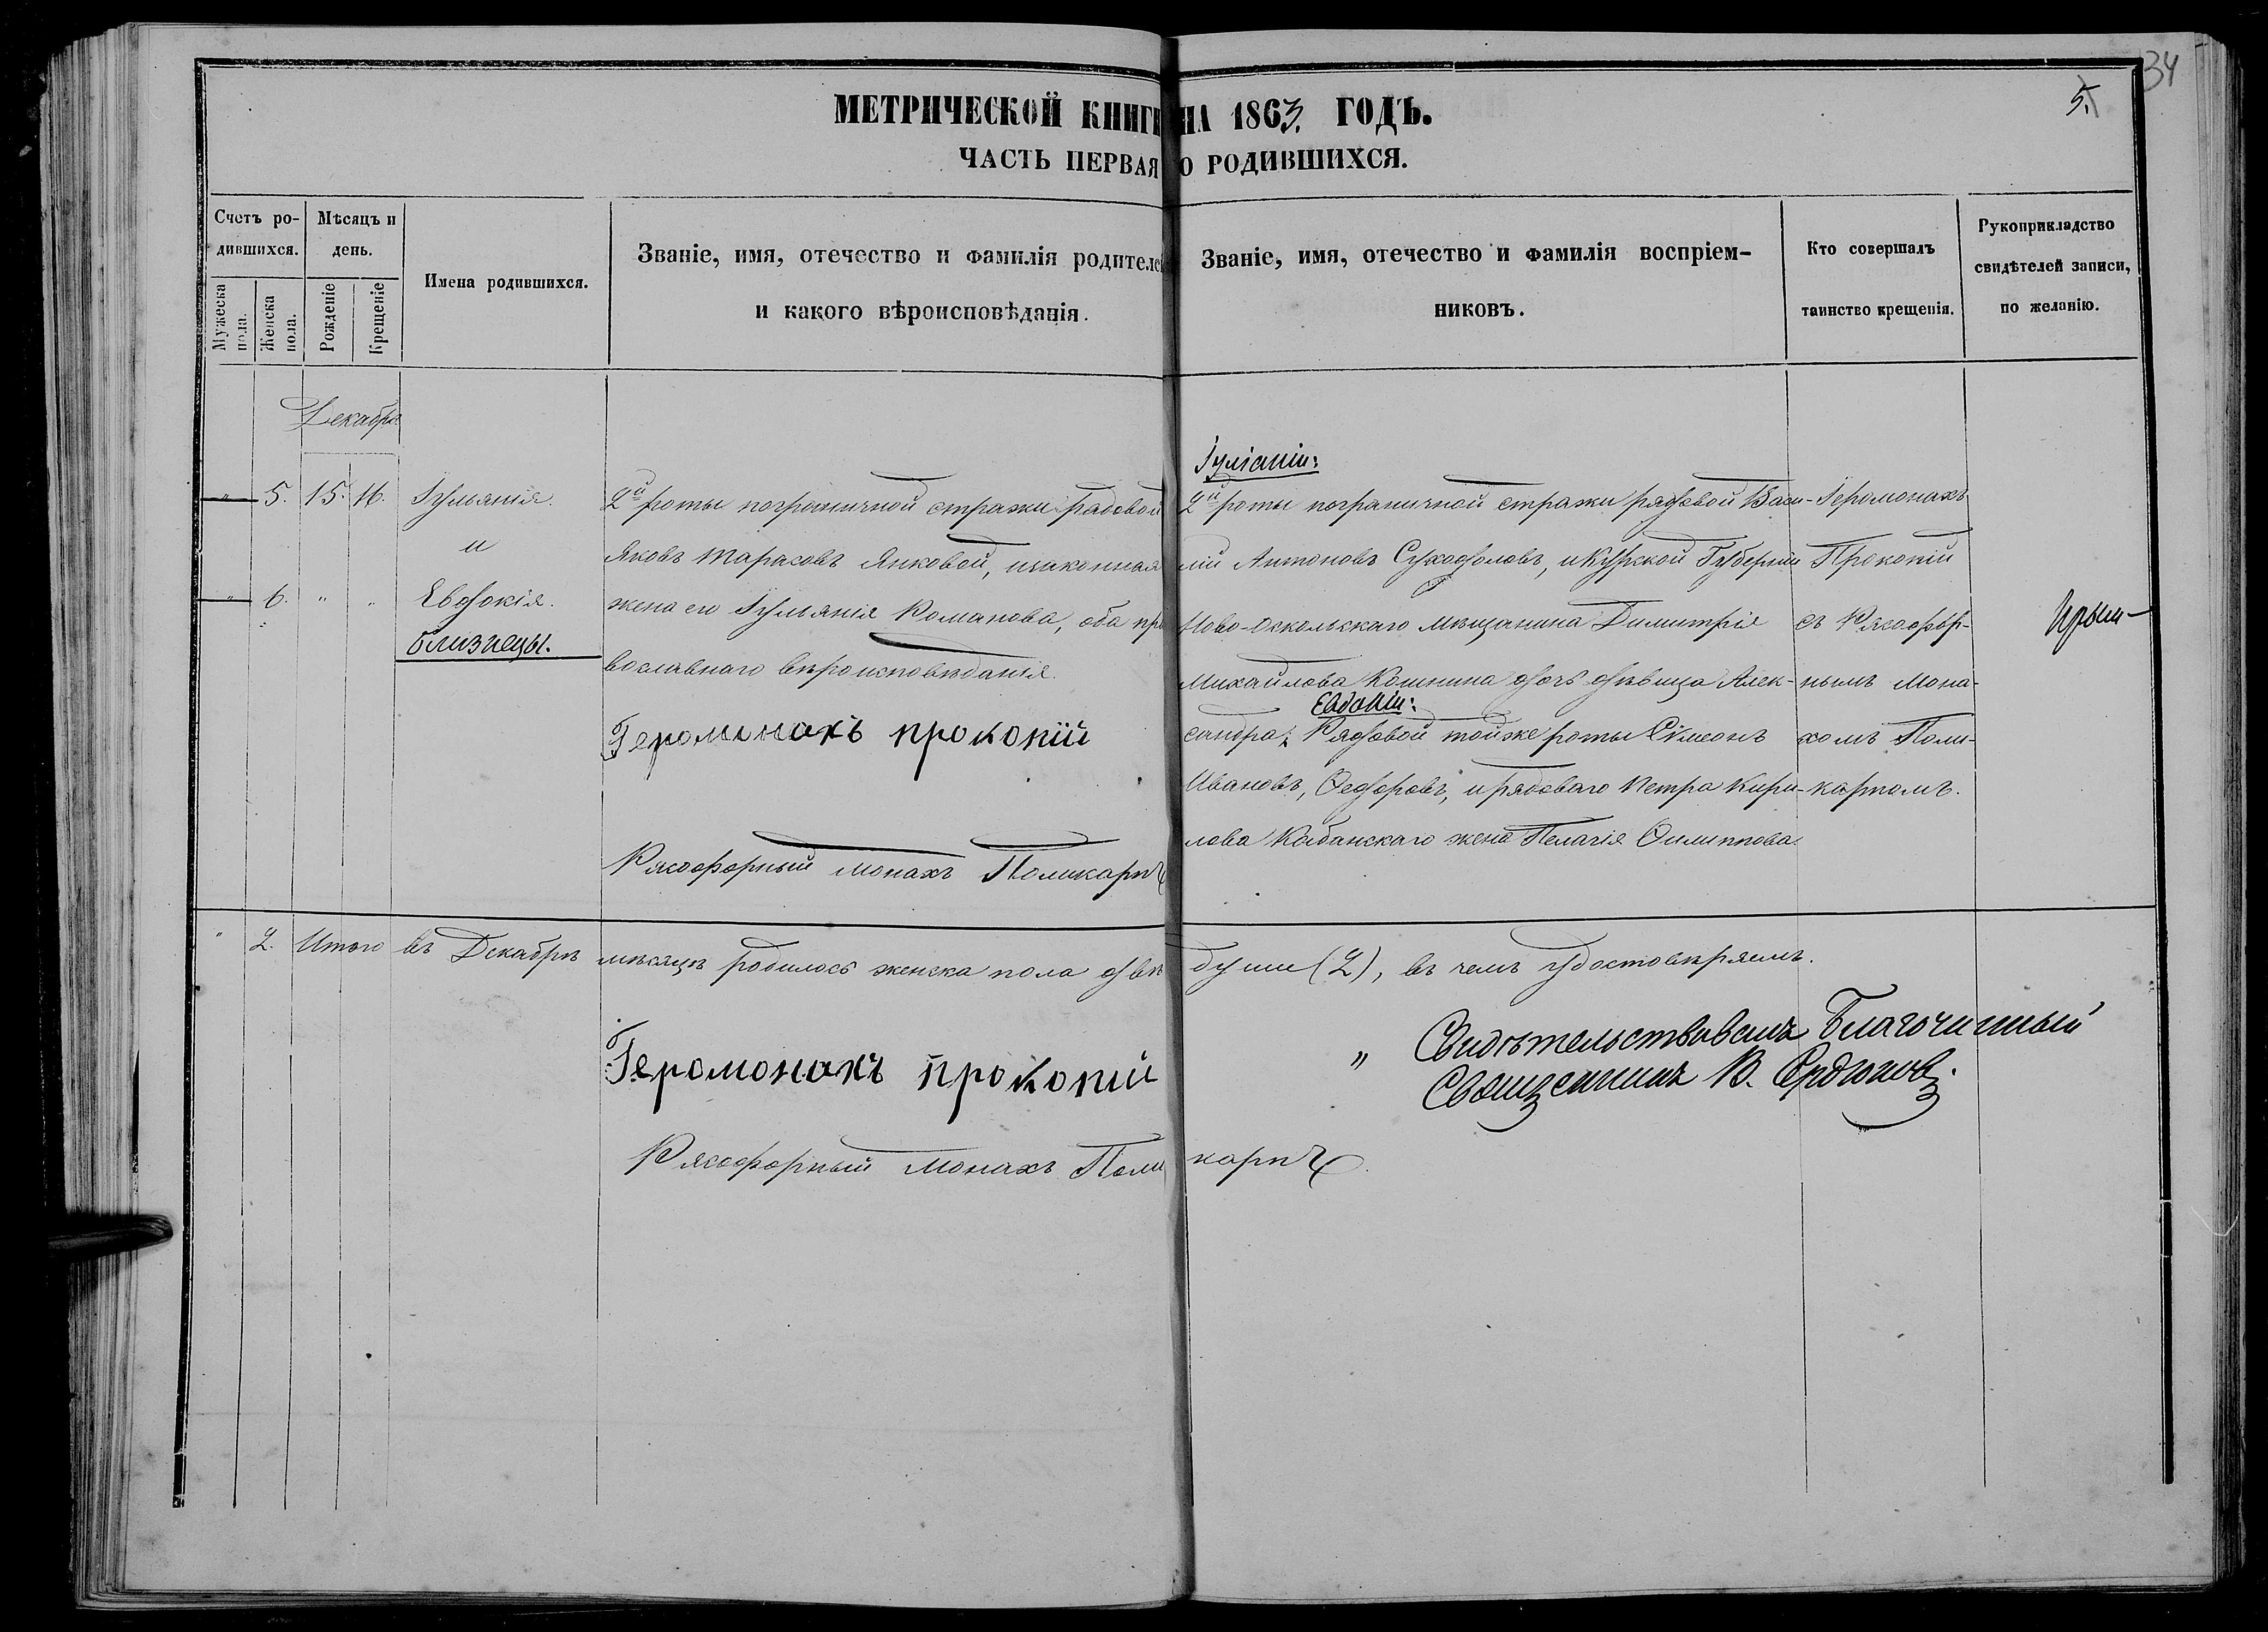 34
5.
МЕТРИЧЕСКОЙ КНИГИ НА 1863. ГОДЪ.
ЧАСТЬ ПЕРВАЯ О РОДИВШИХСЯ.
Счетъ ро-
дившихся.
Мужеска
пола.
Женска
пола.
Мѣсяцъ и
день.
Рожденіе
Крещеніе
Имена родившихся.
Званіе, имя, отечество и фамилія родителей
и какого вѣроисповѣданія.
Званіе, имя, отечество и фамилія воспріем-
никовъ.
Кто совершалъ
таинство крещенія.
Рукоприкладство
свидѣтелей записи,
по желанію.
Декабрь
" 5. 15. 16. Іульянія.
и
" 6. " " Евдокія.
близнецы.
2й роты пограничной стражи рядовой
Яковъ Тарасовъ Янковой, и законная
жена его Іульянія Романова, оба пра
вославнаго вѣроисповѣданія.
Іеромонахъ Прокопій
Рясофорный монахъ Поликарпъ
Іуліаніи:
2й роты пограничной стражи рядовой Васи-
лій Антоновъ Суходоловъ, и Курской Губерніи
Ново-Оскольскаго мѣщанина Димитрія
Михайлова Кошкина дочь дѣвица Алек-
Евдокіи:
сандра; Рядовой тойже роты Сѵмеонъ
Ивановъ, Ѳедоровъ, и рядоваго Петра Кири-
лова Кабанскаго жена Пелагія Филиппова.
Іеромонахъ
Прокопій
съ Рясофор-
нымъ Мона-
хомъ Поли-
карпомъ.
" 2. Итого въ Декабрѣ мѣсяцѣ родилось женска пола двѣ души (2), въ чемъ удостовѣряемъ.
Іеромонахъ Прокопій
" Свидѣтельствовалъ Благочинный
Священникъ В.
Рясофорный Монахъ Поликарпъ